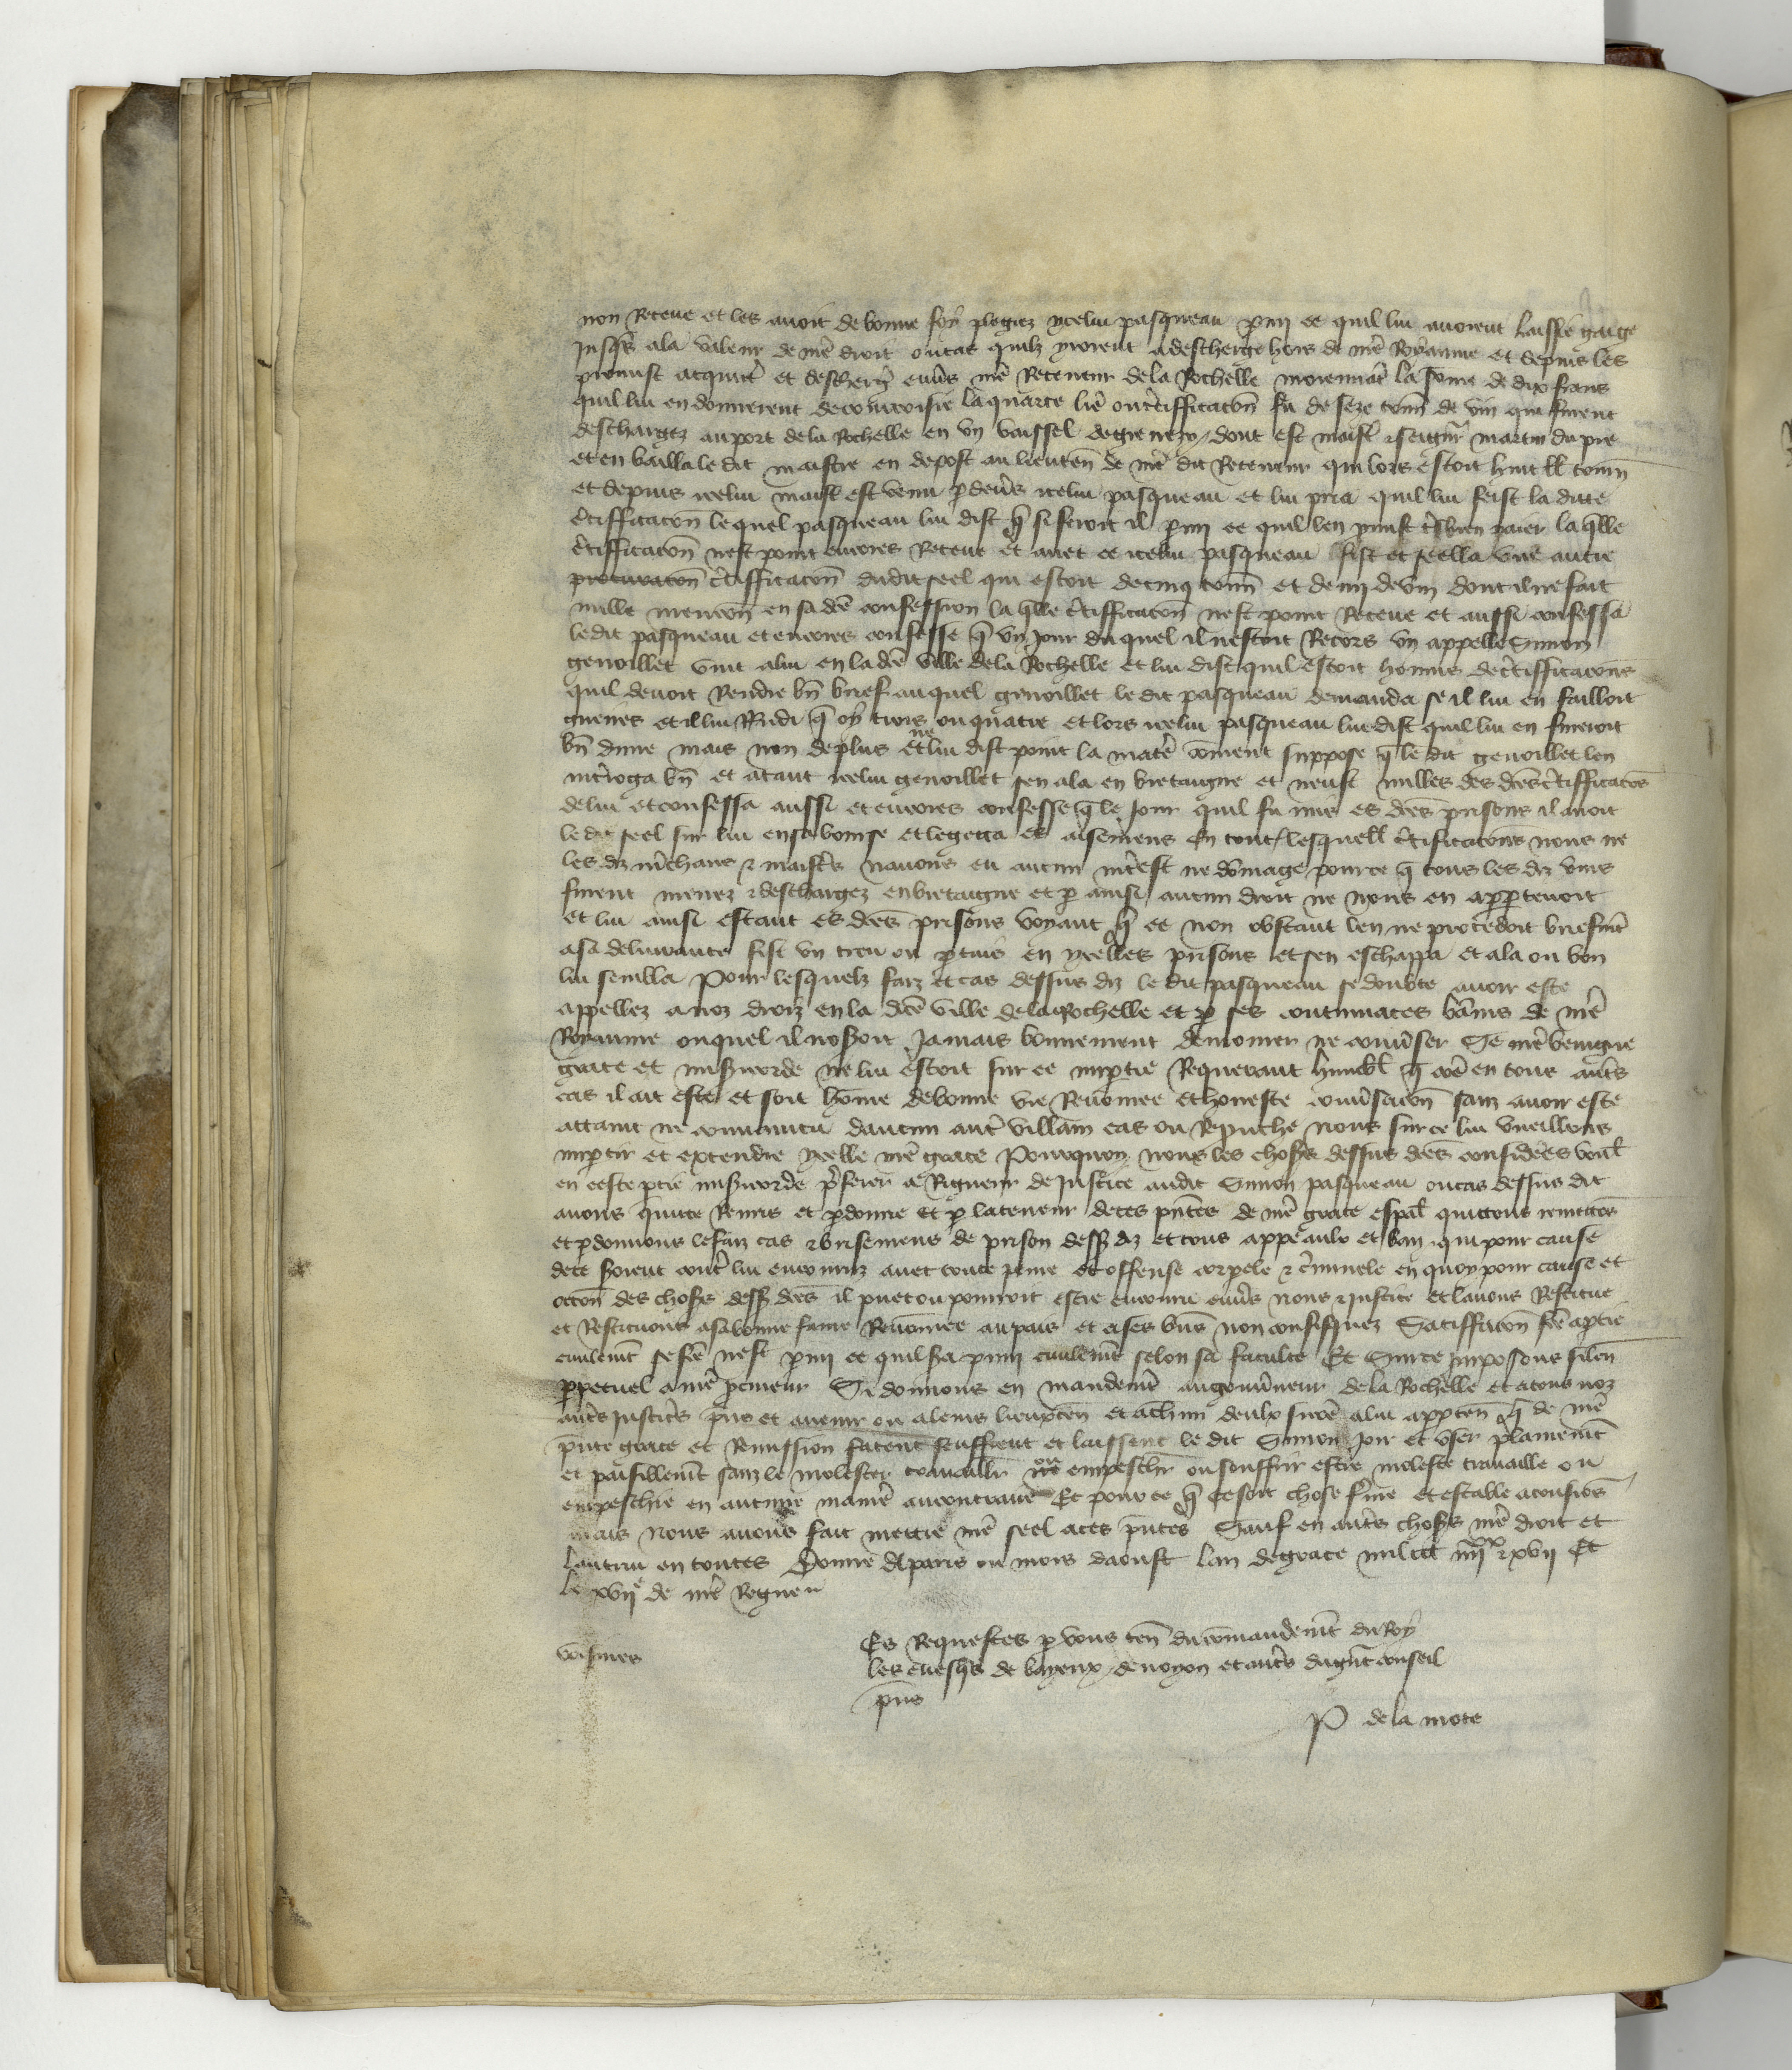 non Receue et les auoit de bonne foy plegiez ycelui pasqueau pmi ce quil lui auoient laissie gaige
Jusqs ala valeur de nre droit ou cas quilz yroient adescherge hors de nre Royaume et depuis les
promist acquitt et descherg enus nre Receueur dela Rochelle moiennāt la some de dix frans
quil lui en donnerent de courtoisie la quarte lre ou ctifficacōn fu de seze tonn de vin qui furent
deschargez auport dela Rochelle en vn vaissel dont est maist & seigur martin du pre
et en bailla le dit maistre en depost au lieuten de nre dit Receueur qui lors estoit huit tonn
et depuis icelui maist est venu p deus icelui pasqueau et lui pria quil lui feist la dicte
ctifficacōn lequel pasqueau lui dist q si feroit il pmi ce quil len promist tsbien paier la qlle
ctifficacōn nest point encores Receue et auec ce icelui pasqueau fist et seella vne autre
procuracōn ctifficacōn dudit seel qui estoit de cinq tonn et demi de vin dont il ne fait
nulle mencōn en sa dce confession la qlle ctifficacōn nest point Receue et aussi confessa
ledit pasqueau et encores confesse q vn Jour du quel il nestoit Recors vn appelle Simon
genoillet vint alui en la dce ville dela Rochelle et lui dist quil estoit homme de ctifficacōns
quil deuoit Rendre bn brief auquel genoillet le dit pasqueau demanda se il lui en failloit
gueires et il lui Rndi q oy trois ou quatre et lors icelui pasqueau lui dist quil lui en fineroit
bn dune mais non de plus et ne lui dist point la matē cōment suppose q le dit genoillet len
introga bn et atant icelui genoillet sen ala en bretaigne et neust nulles des dces ctifficacōs
de lui et confessa aussi et encores confesse q le Jour quil fu mis es dces prisons il auoit
le dit seel sur lui en sa bourse et le getta es aisemens En toutes lesquelles ctifficacōns nous ne
les dz mchans & maists nauons eu aucun intest ne dōmage pour ce q tous les dz vins
furent menez & deschargez en bretaigne et p ainsi aucun droit ne nous en apptenoit
et lui ainsi estant es dces prisons voyant q ce non obstant len ne procedoit briefmt
asa deliurance fist vn treu ou ptuis en ycelles prisons et sen eschappa et ala ou bon
lui sembla Pour lesquelz faiz et cas dessus dz le dit pasqueau se doubte auoir este
appellez a noz droiz en la dce ville dela Rochelle et p ses contumaces bānis de nre
Royaume ouquel il noseroit Jamais bonnement demourer ne conuser Se nre benigne
grace et misicorde ne lui estoit sur ce imptie Requerant humblt q cōe en tous auts
cas il ait este et soit hōme de bonne vie Renōmee et honeste conusacōn sanz auoir este
attaint ne conuaincu daucun aut villain cas ou Reprouche nous sur ce lui vueillons
imptir et extendre ycelle nre grace Pourquoy nous les choses dessus dces considees voult
en ceste ptie misicorde pferer a Rigueur de Justice audit Simon pasqueau ou cas dessus dit
auons quitte Remis et pdonne et p la teneur de ces pntes de nre grace espāl quittons remettos
et pdonnons le faiz cas & brisemens de prison dess dz et tous appeaulx et ban qui pour cause
de ce soient cont lui encouruz auec toute peine et offense corpele & cminele en quoy pour cause et
occōn des choses dess dces il puet ou pourroit estre encouru enus nous & Justice et lauons Restitue
et Restituons asa bonne fame Renōmee au pais et a ses bns non confisquez Satiffacōn fce a ptie
ciuilemt se fce nest pmi ce quil fera pmi ciuilemt selon sa faculte Et Sur ce Imposons silen
ppetuel a nre pcureur Si donnons en mandemt au gouuneur dela Rochelle et atous noz
auts Justicrs pns et auenir ou aleurs lieuxten et achun deulx sicōe alui apptendra q de nre
pnte grace et Remission facent seuffrent et laissent le dit Simon Joir et vser plainemt
et paisiblemt sanz le molester trauaillr ne empeschr ou souffrir estre moleste trauaille ou
empeschie en aucune maniere aucontraire Et pour ce q ce soit chose ferme et estable atousios
mais nous auons fait mettre nre seel aces pntes Sauf en auts choses nre droit et
lautrui en toutes Donne A paris ou mois daoust lan de grace mil ccc iiiixx & xvii Et
le xviie de nre Regne

Es Requestes p vous ten du cōmandemt du Roy
les euesqs de bayeux de noyon et auts du gnt conseil
pns
voisines
P de la mote